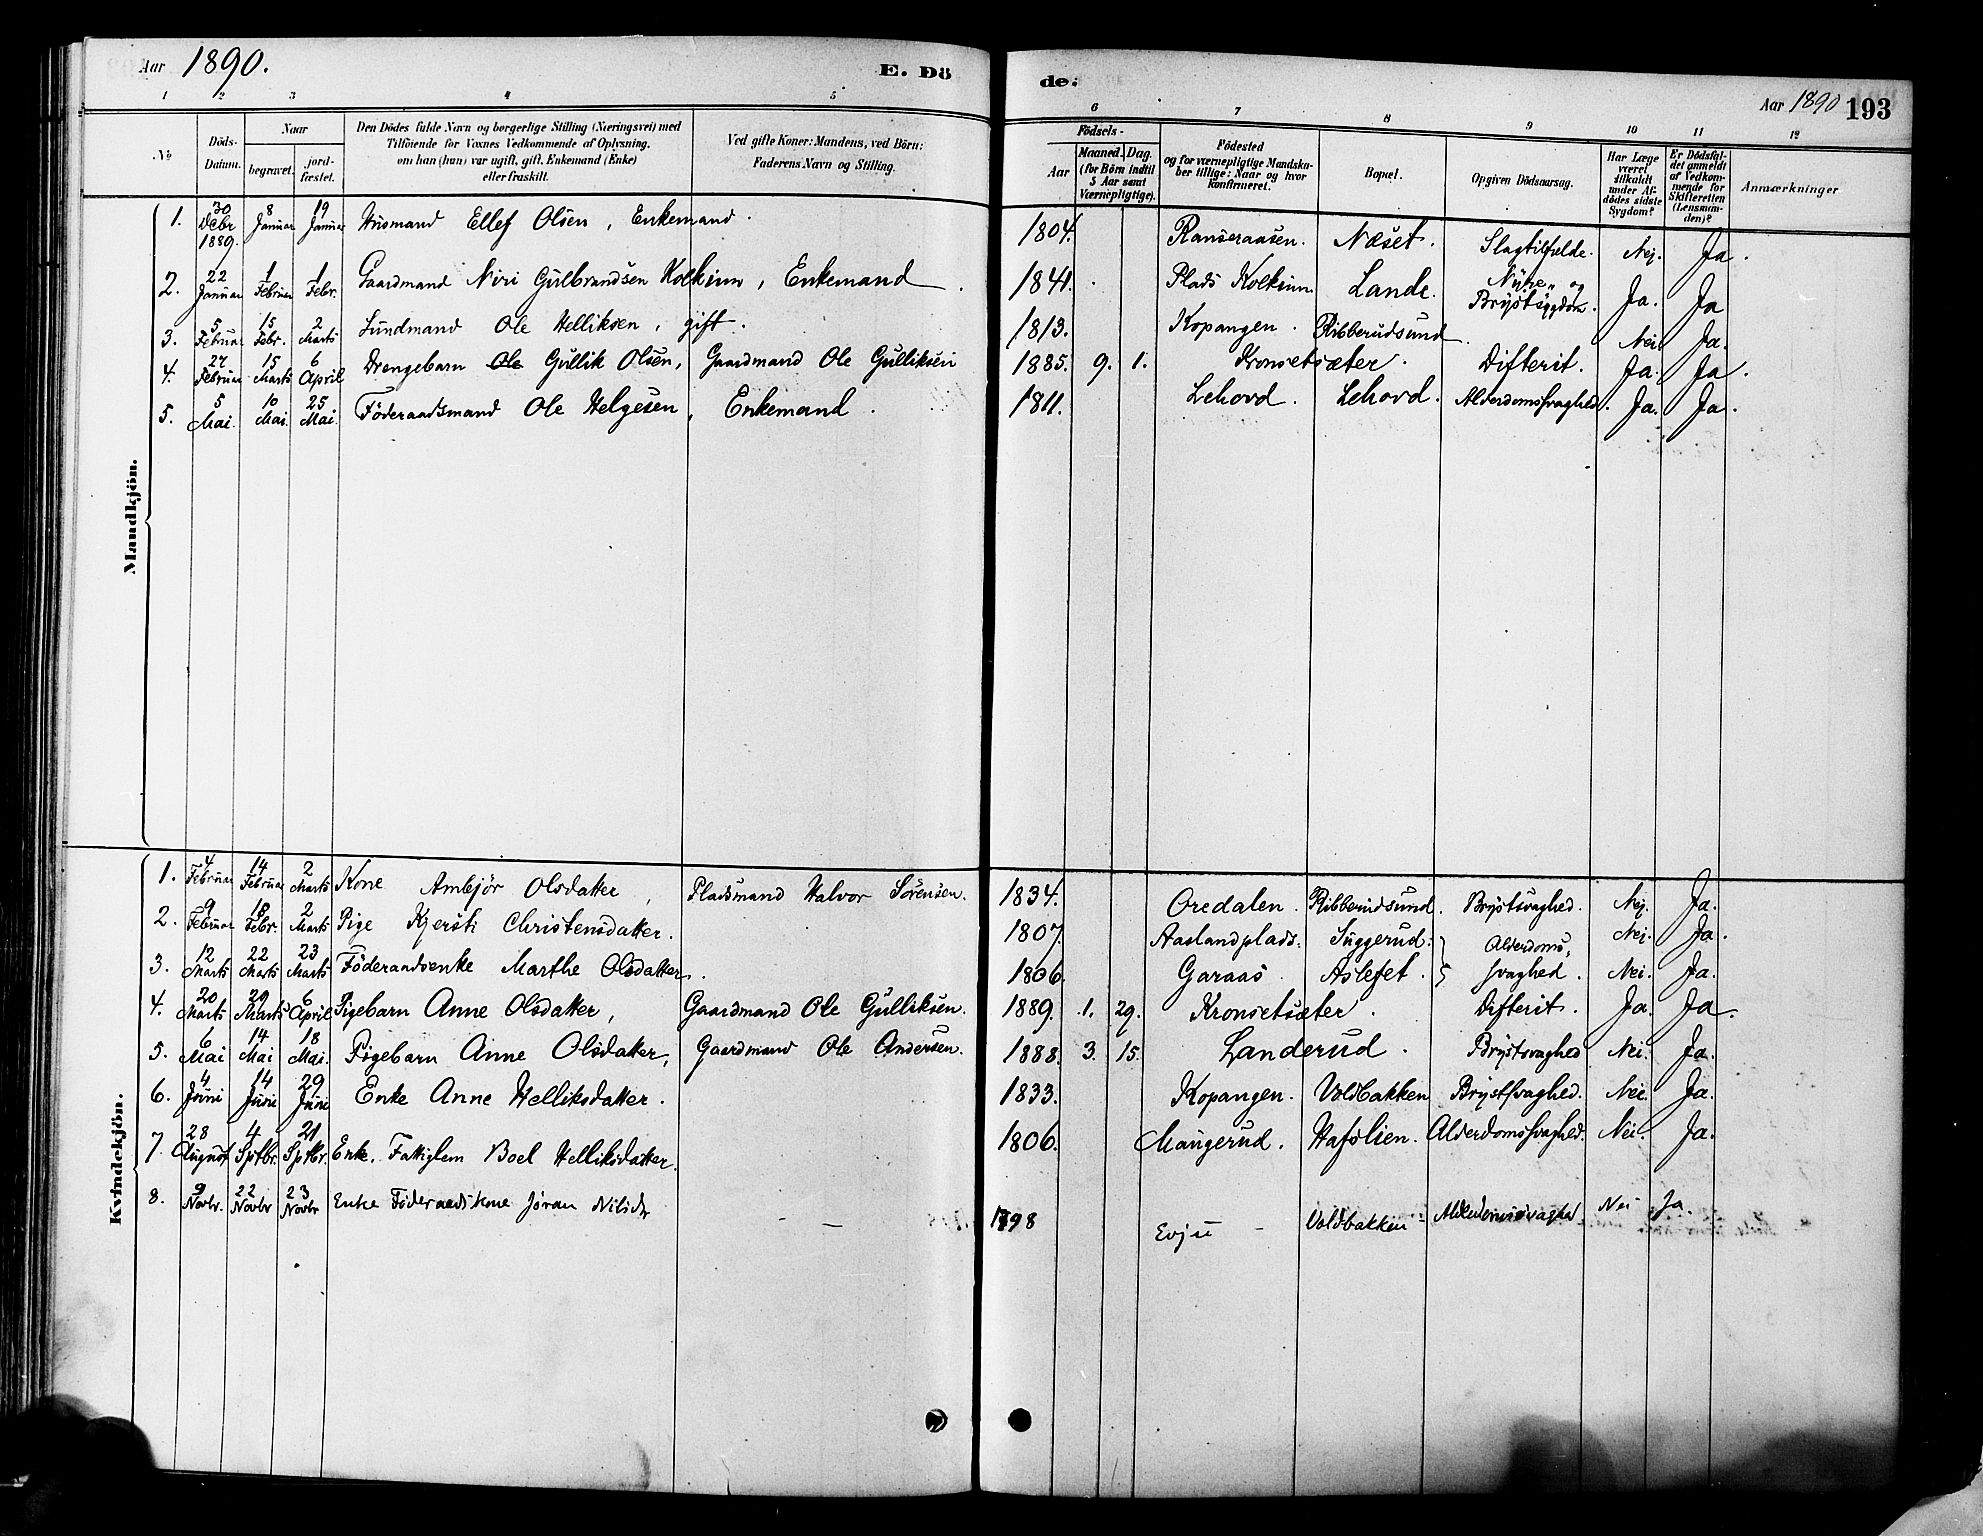 Aar 1890.
E. Dö
de:
Aar 1890 193
1 2 3 4 5 6 7 8 9 10 11 12
No
Döds-Datum.
Naar
begravet.
jord-fæstet.
Den Dödes fulde Navn og borgerlige Stilling (Næringsvei) med
Tilföiende for Voxnes Vedkommende af Oplysning,
om han (hun) var ugift, gift, Enkemand (Enke)
eller fraskilt.
Ved gifte Koner: Mandens, ved Börn:
Faderens Navn og Stilling.
Födsels-
Aar
Maaned. Dag.
(for Börn indtil
5 Aar samt
Værnepligtige).
Födested
og for værnepligtige Mandska-
ber tillige: Naar og hvor
konfirmeret.
Bopæl.
Opgiven Dödsaarsag.
Har Læge
været
tilkaldt
under Af-
dödes sidste
Sygdom?
Er Dödsfal-
det anmeldt
af Vedkom-
mende for
Skifteretten
(Lensman-
den)?
Anmærkninger
Mandkjön.
1. 30 Debr 1889. 8 Januar 19 Januar Husmand Ellef Olsen, Enkemand. 1804. Ranseraasen. Næset. Slagtilfælde. Nei. Ja.
2. 22 Januar 1 Februar 1 Febr. Gaardmand Niri Gulbrandsen Kolkinn, Enkemand. 1841. Plads Kolkinn. Lande. Nyre- og Brystsygdom. Ja. Ja
3. 5 Februar 15 Febr. 2 Marts Lundmand Ole Helliksen, gift. 1813. Kopangen. Ribberudsund. Nei. Ja.
4. 27 Februar 15 Marts 6 April Drengebarn Ole Gullik Olsen, Gaardmand Ole Gulliksen 1885. 9. 1. Kronsetsæter. Difterit. Ja. Ja.
5. 5 Mai. 10 Mai. 25 Mai. Föderaadsmand Ole Helgesen, Enkemand. 1811. Lehovd. Lehovd. Alderdomssvaghed. Ja. Ja.
Kvindekjön.
1. 4 Februar 14 Februar 2 Marts Kone Ambjør Olsdatter, Pladsmand Halvor Sørensen. 1834. Oredalen. Ribberudsund. Brystsvaghed. Nei. Ja.
2. 9 Februar 18 Febr. 2 Marts Pige Kjersti Christensdatter. 1807. Aaslandplads. Suggerud. Alderdoms- Nei. Ja.
3. 12 Marts 22 Marts 23 Marts Föderaadsenke Marthe Olsdatter. 1806. Garaas Aslefet. svaghed. Nei. Ja.
4. 20 Marts 29 Marts 6 April Pigebarn Anne Olsdatter, Gaardmand Ole Gulliksen. 1889. 1. 29. Kronsetsæter. Difterit. Ja. Ja.
5. 6 Mai 14 Mai 18 Mai. Pigebarn Anne Olsdatter, Gaardmand Ole Andersen. 1888. 3. 15. Landerud. Brystsvaghed Nei. Ja.
6. 4 Juni 14 Juni 29 Juni Enke Anne Helliksdatter. 1833. Kopangen. Voldbakken Brystsvaghed. Nei. Ja.
7. 28 August 4 Sptbr. 21 Sptbr. Enke. Fattiglem Boel Helliksdatter. 1806. Maugerud. Hafslien. Alderdomssvaghed. Nei. Ja.
8. 9 Novbr. 22 Novbr 23 Novbr Enke Föderaadskone Jøran Nilsdr — — 1798 Evju — Voldbakken Alderdomssvaghed Nei Ja.